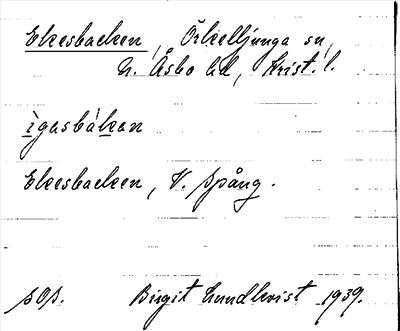 Ekesbacken, Örkelljunga sn,
N. Åsbo hd, Krist. l.
ìgasbákan
Ekesbacken, V. Spång.
SOS. Birgit Lundkvist 1939.